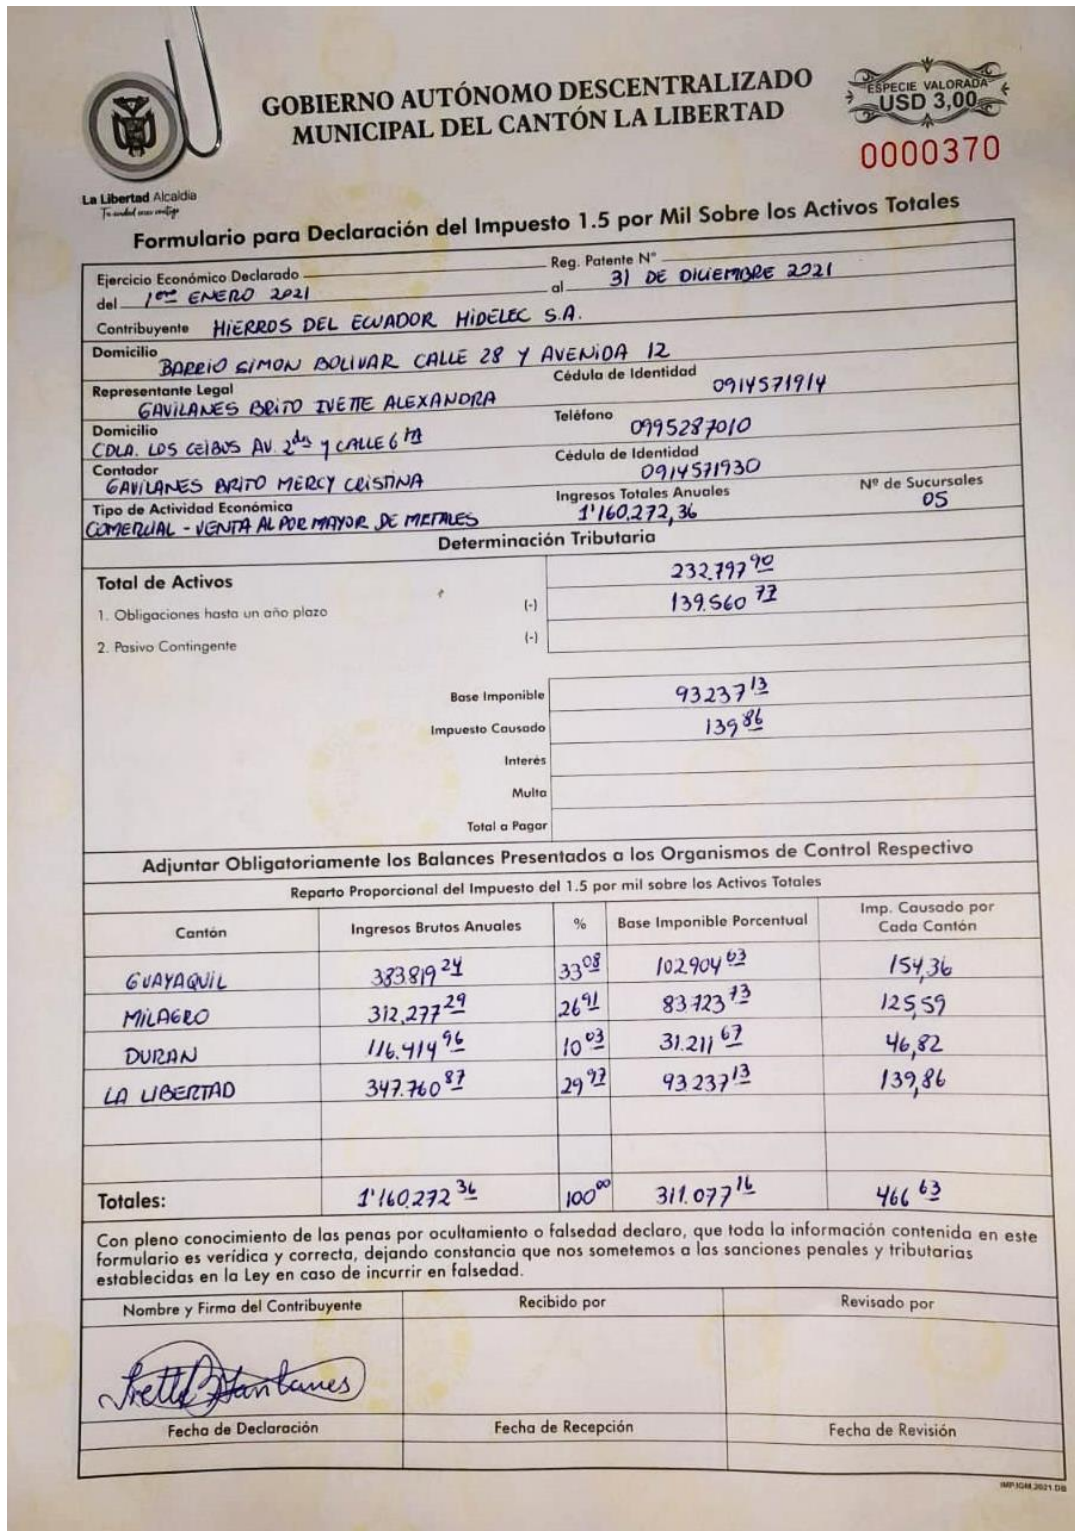 GOBIERNO AUTÓNOMO DESCENTRALIZADO
MUNICIPAL DEL CANTÓN LA LIBERTAD
ESPECIE VALORADA
USD 3,00
0000370
La Libertad Alcaldía
Tu ciudad crece contigo
Formulario para Declaración del Impuesto 1.5 por Mil Sobre los Activos Totales
Ejercicio Económico Declarado Reg. Patente N°
del 1ero ENERO 2021 al 31 DE DICIEMBRE 2021
Contribuyente HIERROS DEL ECUADOR HIDELEC S.A.
Domicilio BARRIO SIMON BOLIVAR CALLE 28 Y AVENIDA 12
Representante Legal Cédula de Identidad
GAVILANES BRITO IVETTE ALEXANDRA 0914571914
Domicilio Teléfono
CDLA. LOS CEIBOS AV. 2da y CALLE 6ta 0995287010
Contador Cédula de Identidad
GAVILANES BRITO MERCY CRISTINA 0914571930
Tipo de Actividad Económica Ingresos Totales Anuales Nº de Sucursales
COMERCIAL - VENTA AL POR MAYOR DE METALES 1'160.272,36 05
Determinación Tributaria
Total de Activos 232.797 90
1. Obligaciones hasta un año plazo (-) 139.560 77
2. Pasivo Contingente (-)
Base Imponible 93237 13
Impuesto Causado 139 86
Interés
Multa
Total a Pagar
Adjuntar Obligatoriamente los Balances Presentados a los Organismos de Control Respectivo
Reparto Proporcional del Impuesto del 1.5 por mil sobre los Activos Totales
Cantón Ingresos Brutos Anuales % Base Imponible Porcentual Imp. Causado por Cada Cantón
GUAYAQUIL 383.819 24 33 08 102.904 63 154,36
MILAGRO 312.277 29 26 91 83.723 73 125,59
DURAN 116.414 96 10 03 31.211 67 46,82
LA LIBERTAD 347.760 87 29 97 93.237 13 139,86
Totales: 1'160.272 36 100 00 311.077 16 466 63
Con pleno conocimiento de las penas por ocultamiento o falsedad declaro, que toda la información contenida en este
formulario es verídica y correcta, dejando constancia que nos sometemos a las sanciones penales y tributarias
establecidas en la Ley en caso de incurrir en falsedad.
Nombre y Firma del Contribuyente Recibido por Revisado por
Fecha de Declaración Fecha de Recepción Fecha de Revisión
IMP.IGM.2021.DB